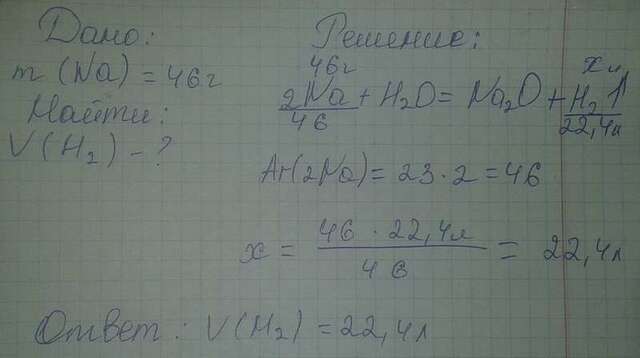 Дано:
m (Na) = 46г
Найти:
V(H₂) – ?
Решение:
46г
x л
2Na + H₂O = Na₂O + H₂↑
46
22,4л
Ar(2Na) = 23 · 2 = 46
x = 46 · 22,4л / 46 = 22,4л
Ответ: V(H₂) = 22,4л